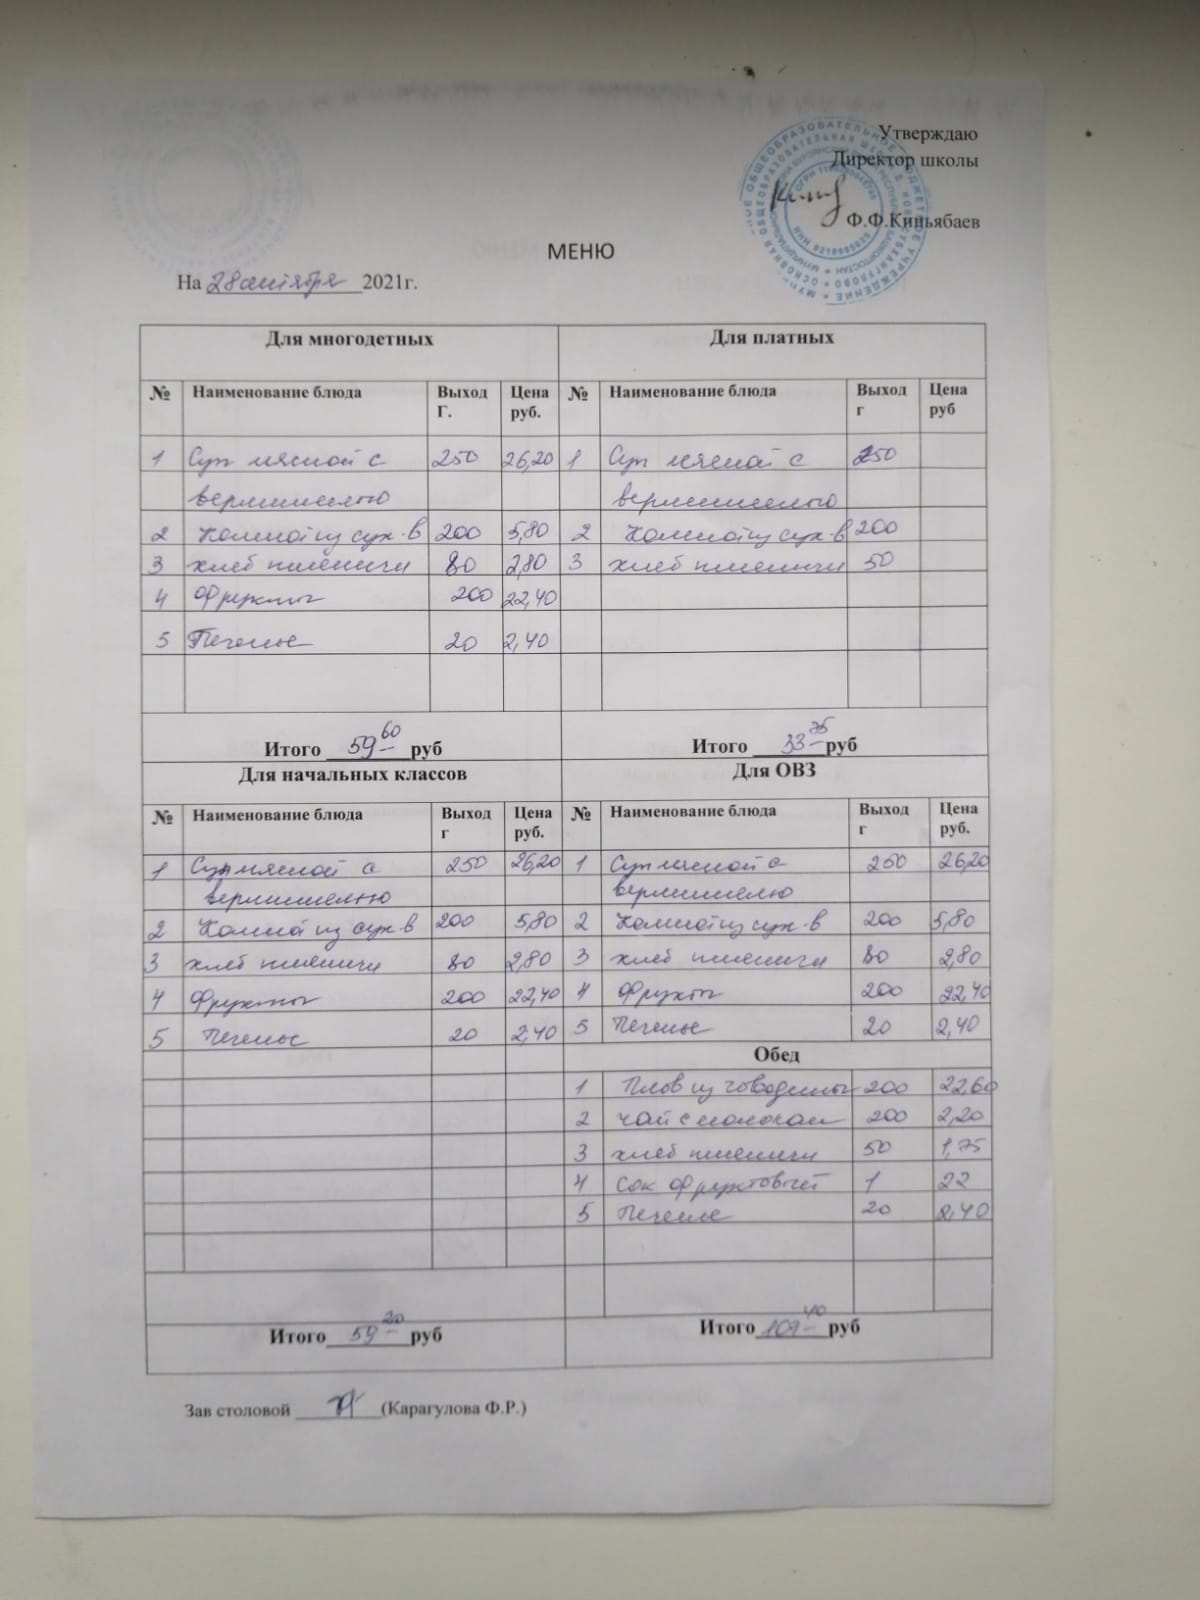 Утверждаю
Директор школы
Ф.Ф.Киньябаев
МЕНЮ
На 28 октября 2021г.
Для многодетных Для платных
№ Наименование блюда Выход Г. Цена руб. № Наименование блюда Выход г Цена руб
1 Суп мясной с 250 26,20 1 Суп мясной с 250
вермишелью вермишелью
2 Компот из сух-в 200 5,80 2 Компот из сух-в 200
3 хлеб пшеничн 80 2,80 3 хлеб пшеничн 50
4 Фрукты 200 22,40
5 Печенье 20 2,40
Итого 59-60 руб Итого 33-75 руб
Для начальных классов Для ОВЗ
№ Наименование блюда Выход г Цена руб. № Наименование блюда Выход г Цена руб.
1 Суп мясной с 250 26,20 1 Суп мясной с 250 26,20
вермишелью вермишелью
2 Компот из сух-в 200 5,80 2 Компот из сух-в 200 5,80
3 хлеб пшеничн 80 2,80 3 хлеб пшеничн 80 2,80
4 Фрукты 200 22,40 4 Фрукты 200 22,40
5 Печенье 20 2,40 5 Печенье 20 2,40
Обед
1 Плов из говядины 200 22,60
2 чай с молоком 200 2,20
3 хлеб пшеничн 50 1,75
4 Сок фруктовый 1 22
5 Печенье 20 2,40
Итого 59-20 руб Итого 109-40 руб
Зав столовой (Карагулова Ф.Р.)